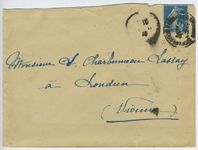 Monsieur L. Charbonneau Lassay
à Loudun
(Vienne)